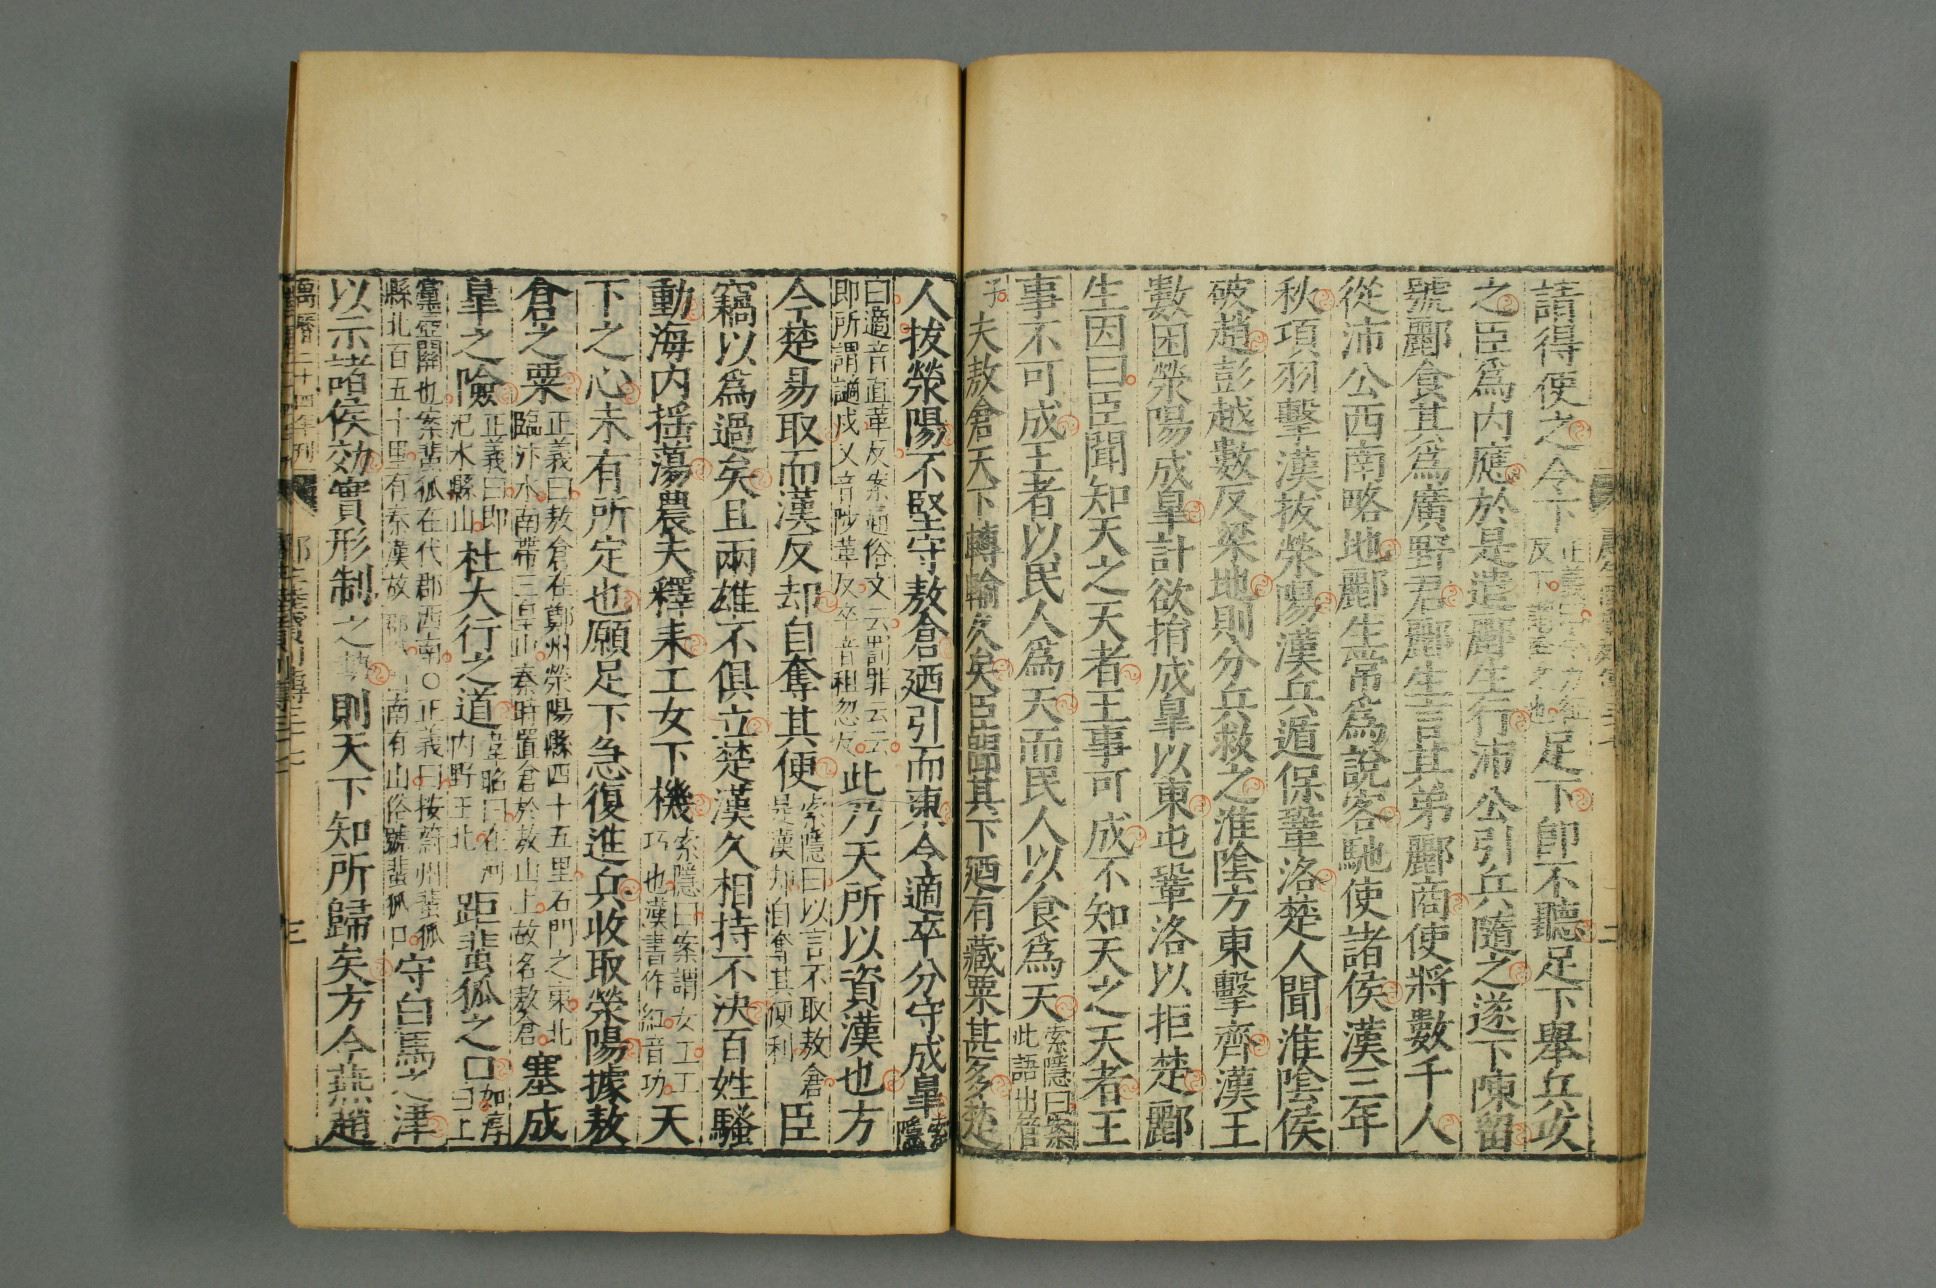 請得使之令下足下即不聽足下舉兵攻
之臣爲内應於是遣酈生行沛公引兵隨之遂下陳留
號酈食其爲廣野君酈生言其弟酈商使將數千人
從沛公西南略地酈生常爲說客馳使諸侯漢三年
秋項羽擊漢拔滎陽漢兵遁保鞏洛楚人聞淮陰侯
破趙彭越數反梁地則分兵救之淮陰方東擊齊漢王
數困滎陽成皐計欲捐成皐以東屯鞏洛以拒楚酈
生因曰臣聞知天之天者王事可成不知天之天者王
事不可成王者以民人爲天而民人以食爲天索隱曰案此語出管
子夫敖倉天下轉輸久矣臣聞其下廼有藏粟甚多楚
人拔滎陽不堅守敖倉廼引而東令適卒分守成皐索隱
曰適音直革反案通俗文云罰罪云云即所謂讁戍又音陟革反卒音租忽反此乃天所以資漢也方
今楚易取而漢反却自奪其便索隱曰以言不取敖倉是漢却自奪其便利臣
竊以爲過矣且兩雄不俱立楚漢久相持不決百姓騷
動海内揺蕩農夫釋耒工女下機索隱曰案謂女工工巧也漢書作紅音功天
下之心未有所定也願足下急復進兵收取滎陽據敖
倉之粟正義曰敖倉在鄭州滎陽縣西四十五里石門之東北臨汴水南帶三皇山秦時置倉於敖山上故名敖倉塞成
皐之險正義曰即汜水縣山杜大行之道韋昭曰在河内野王北距蜚狐之口如淳曰上
黨壺關也案蜚狐在代郡西南○正義曰按蔚州蜚狐縣北百五十里有秦漢故郡南有山俗號蜚狐口守白馬之津
以示諸侯効實形制之則天下知所歸矣方今燕趙
萬曆二十四年刊
三